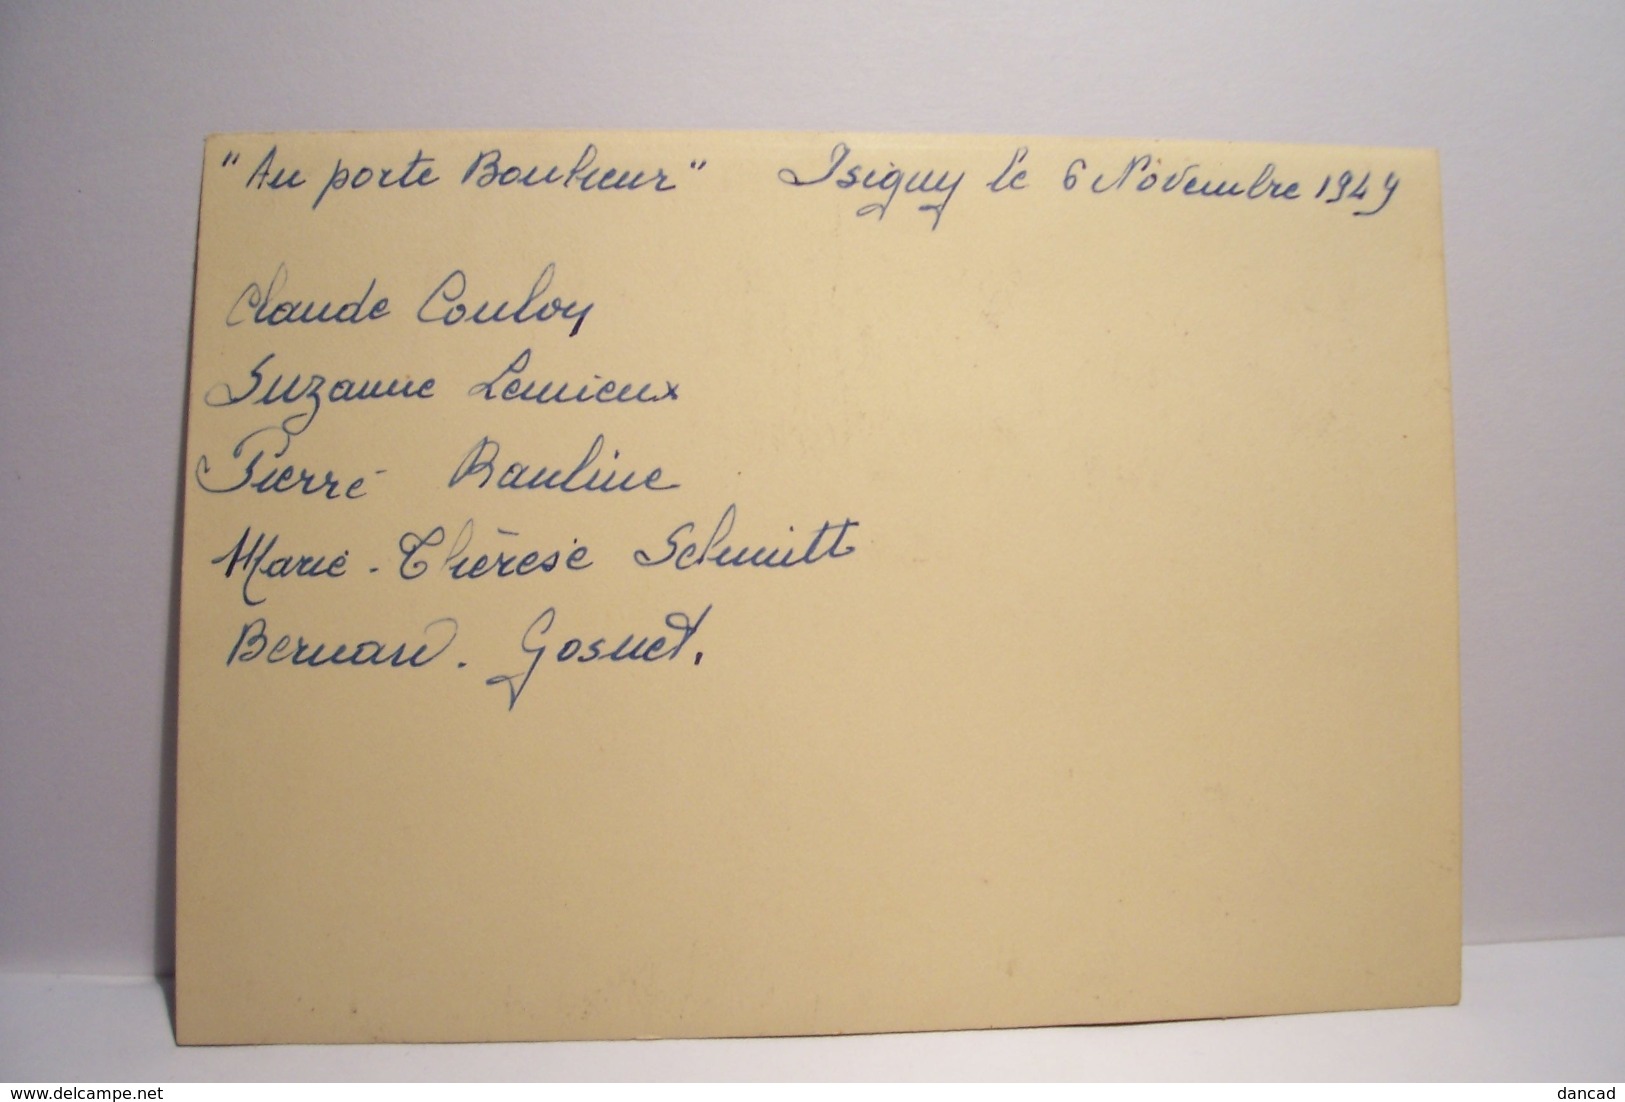 "Au porte Bonheur" Isigny le 6 Novembre 1949
Claude Couloy
Suzanne Lemieux
Pierre Rauline
Marie-Thérèse Schmitt
Bernard. Gosnet.
delcampe.net
dancad